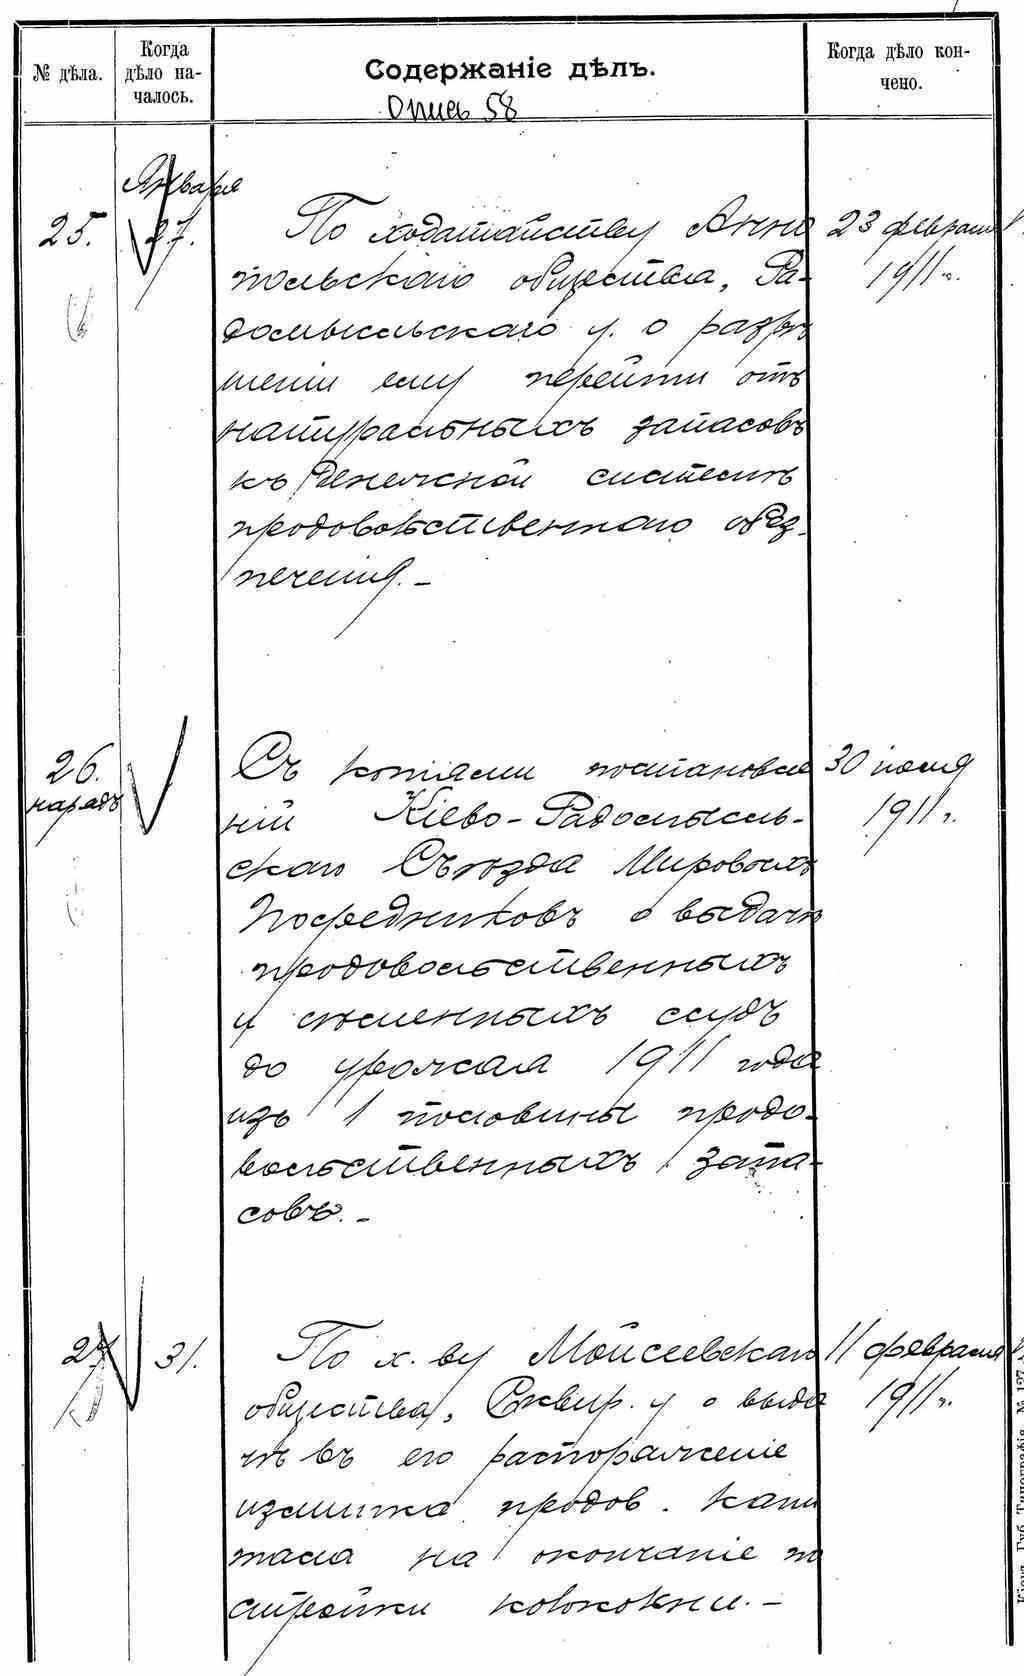 № дѣла.
Когда дѣло на-
чалось.
Содержаніе дѣлъ.
Когда дѣло кон-
чено.
Опись 58
Января
25. 27. По ходатайству Анно 23 февраля
польскаго общества, Ра- 1911 г.
домысльскаго у. о разрѣ
шеніи ему перейти отъ
натуральныхъ запасовъ
къ денежной системѣ
продовольственнаго обез-
печенія. -
26. Съ копіями постановле 30 іюня
нарядъ
ній Кіево-Радомысль- 1911 г.
скаго Съѣзда Мировыхъ
Посредниковъ о выдачѣ
продовольственныхъ
и сѣменныхъ ссудъ
до урожая 1911 года
изъ 1 половины продо-
вольственныхъ запа-
совъ. -
27 31. По х.ву Мойсеевскаго 11 февраля
общества, Сквир. у о выда 1911 г.
чѣ въ его распоряженіе
излишка продов. капи
тала на окончаніе по
стройки колокольни. -
Кіев. Губ. Типографія. № 127